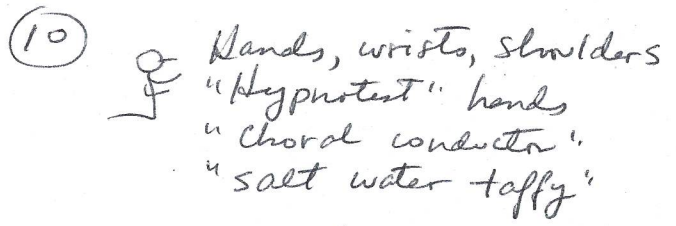 10
Hands, wrists, shoulders
"Hypnotest" hands
"choral conductor"
"salt water taffy"